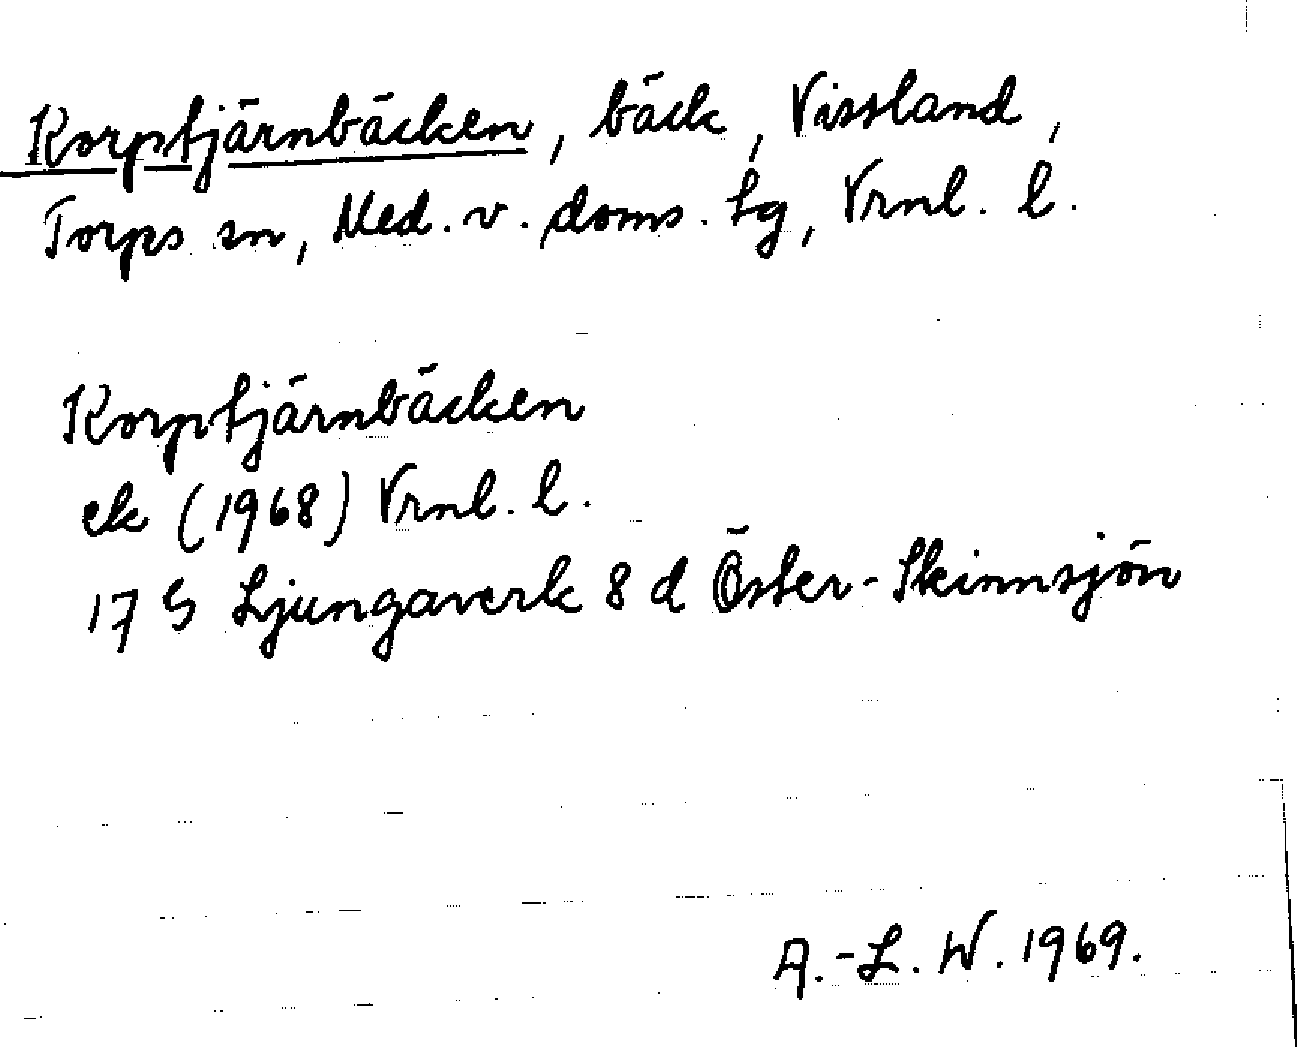 Korptjärnbäcken, bäck, Vissland,
Torps sn, Med. v. doms. tg, Vrnl. l.
Korptjärnbäcken
ek (1968) Vrnl. l.
17 G Ljungaverk 8 d Öster-Skinnsjön
A.-L. W. 1969.